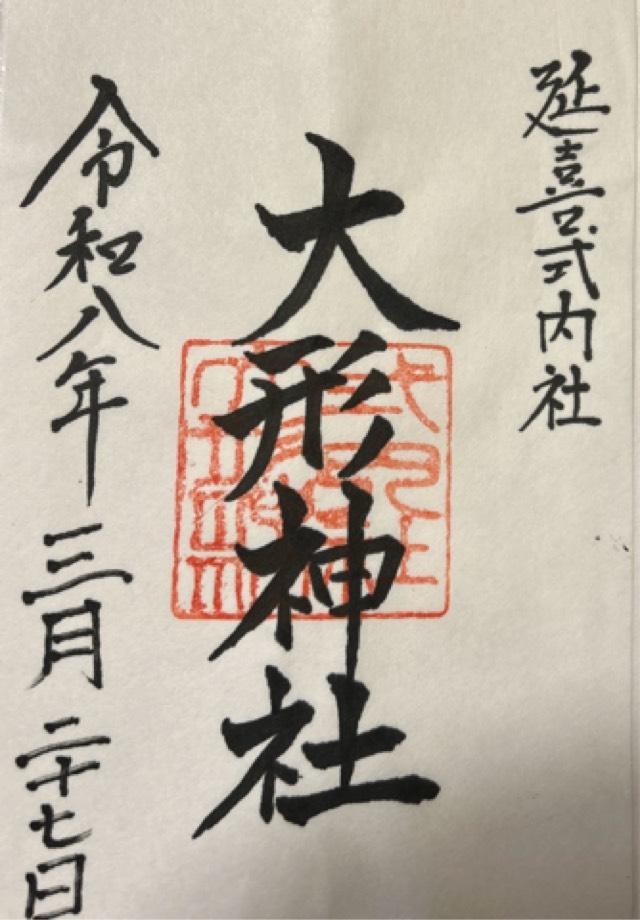 延喜式内社
大形神社
令和八年三月二十七日